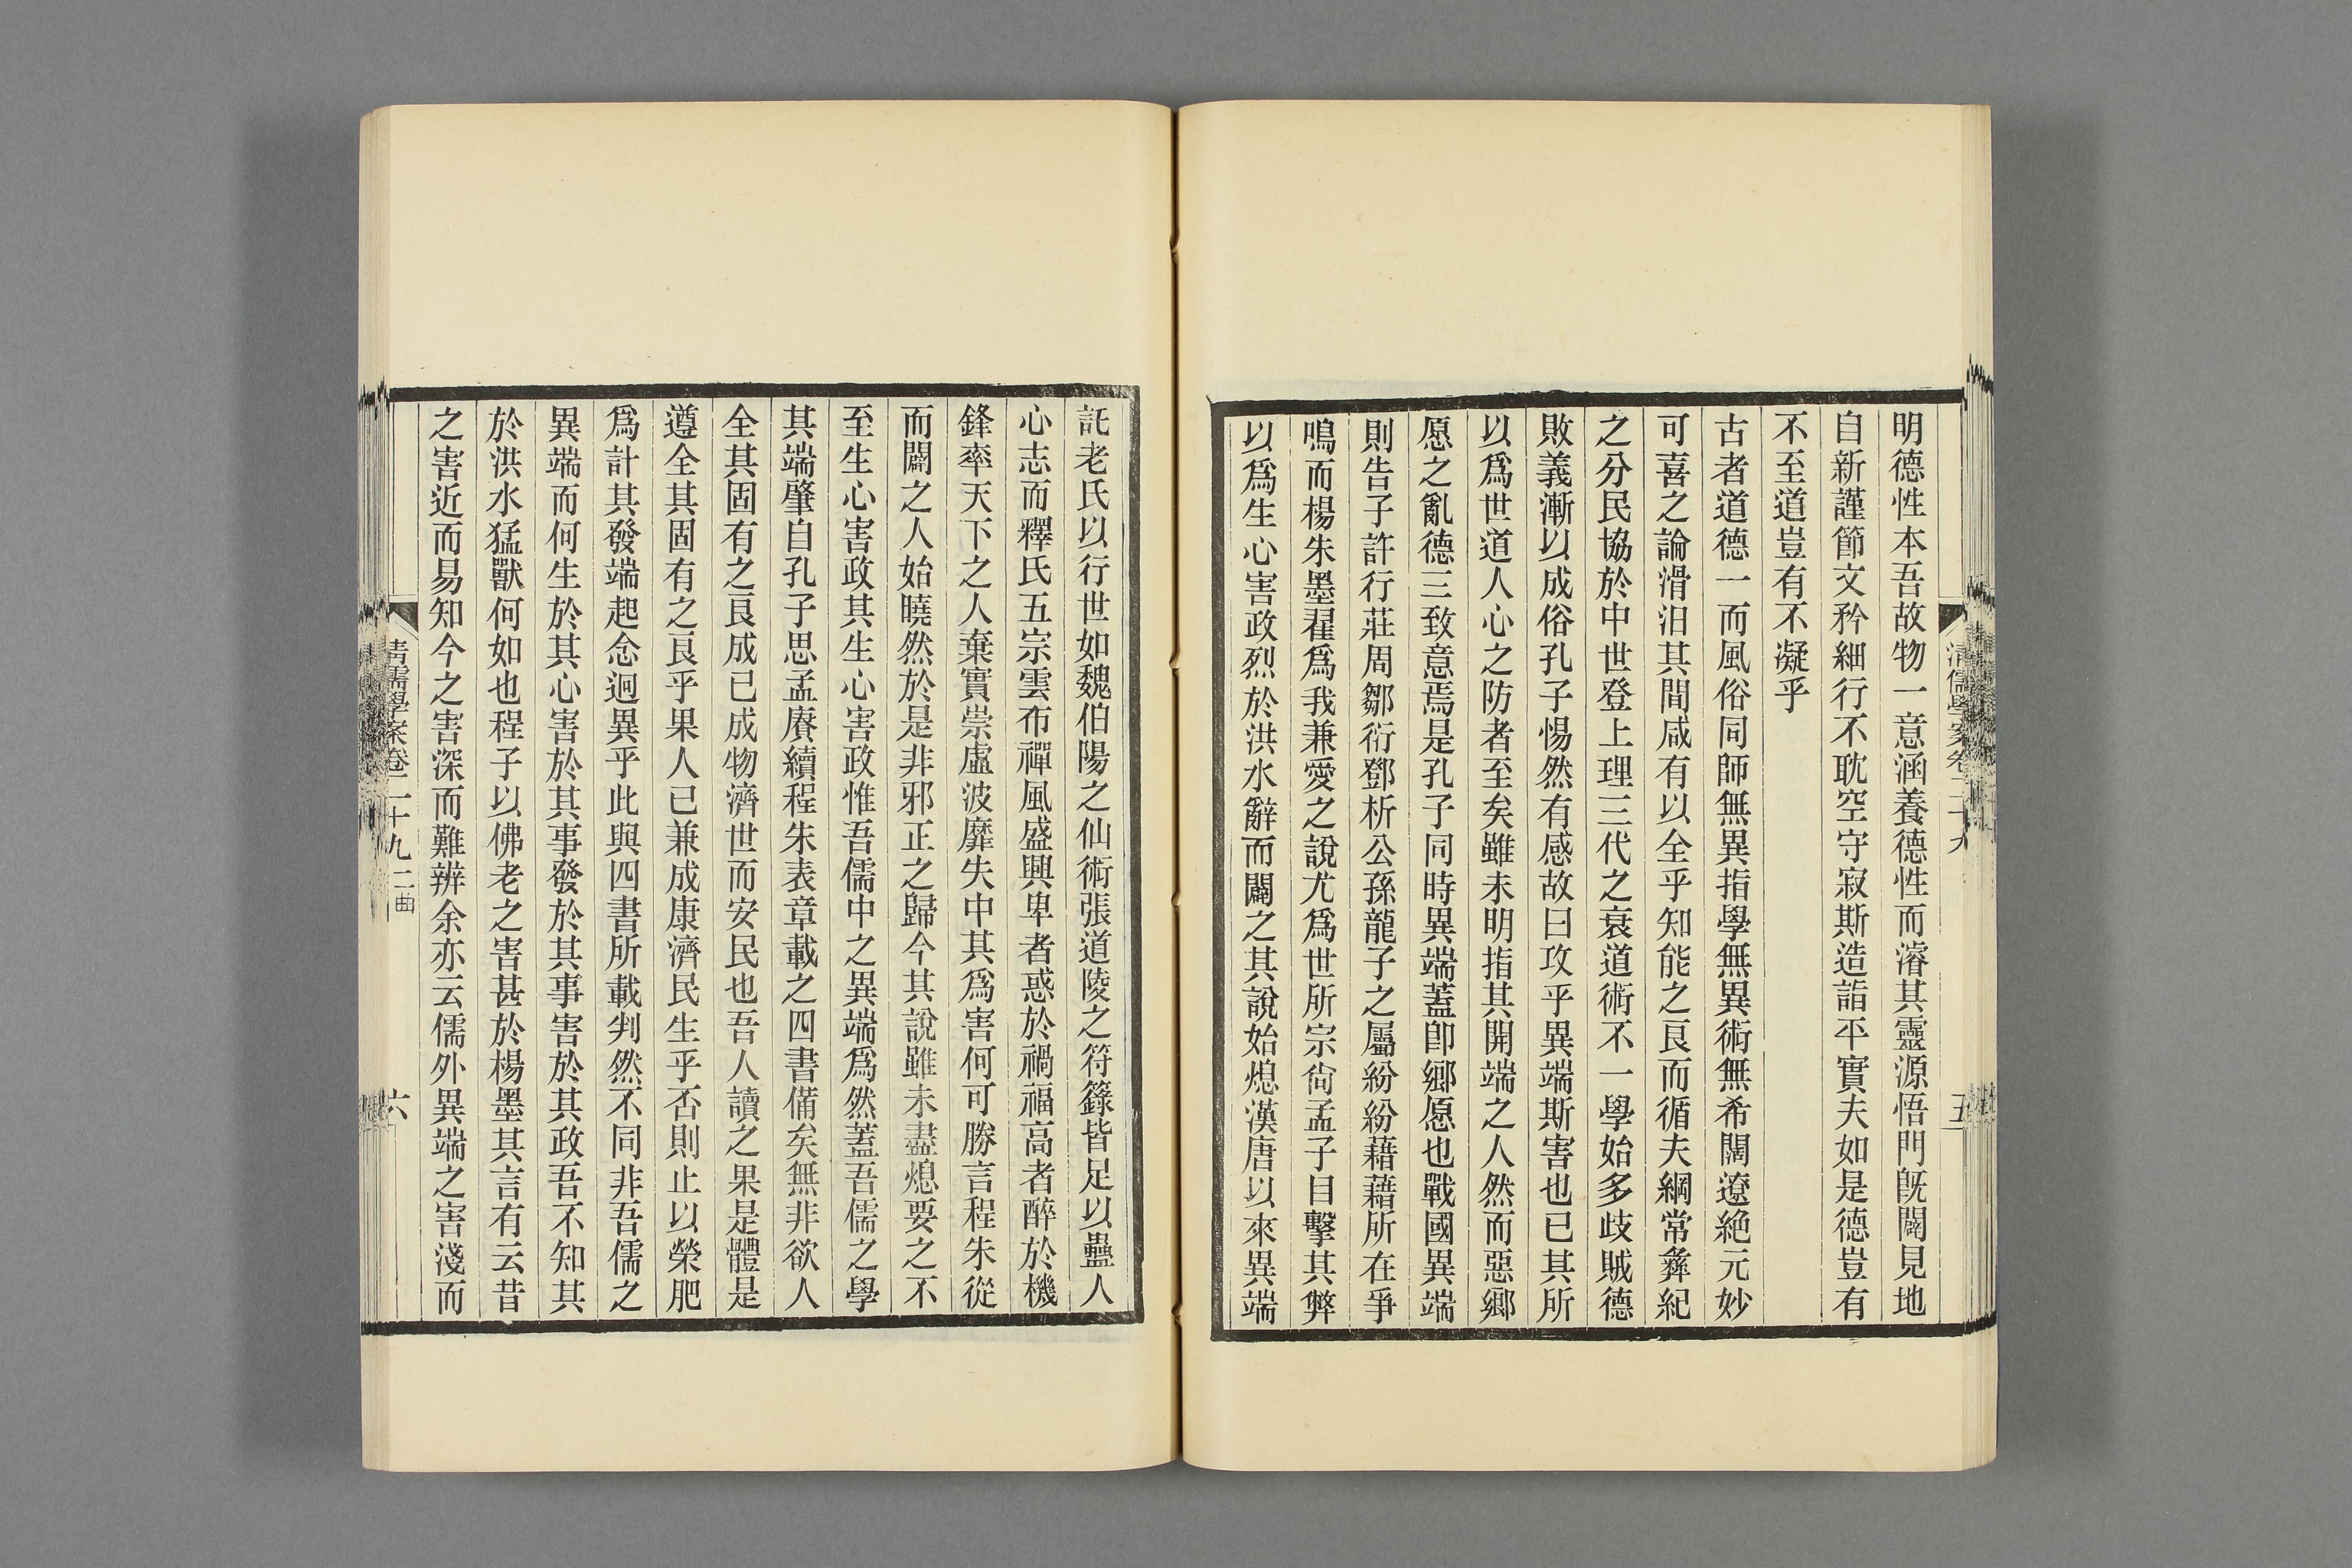 清儒學案卷二十九
五
明德性本吾故物一意涵養德性而濬其靈源悟門旣闢見地
自新謹節文矜細行不耽空守寂斯造詣平實夫如是德豈有
不至道豈有不凝乎
古者道德一而風俗同師無異指學無異術無希闊遼絶元妙
可喜之論滑汨其間咸有以全乎知能之良而循夫綱常彝紀
之分民協於中世登上理三代之衰道術不一學始多歧賊德
敗義漸以成俗孔子惕然有感故曰攻乎異端斯害也已其所
以爲世道人心之防者至矣雖未明指其開端之人然而惡鄉
愿之亂德三致意焉是孔子同時異端蓋卽鄉愿也戰國異端
則告子許行莊周鄒衍鄧析公孫龍子之屬紛紛藉藉所在爭
鳴而楊朱墨翟爲我兼愛之說尤爲世所宗尙孟子目擊其弊
以爲生心害政烈於洪水辭而闢之其說始熄漢唐以來異端
託老氏以行世如魏伯陽之仙術張道陵之符籙皆足以蠱人
心志而釋氏五宗雲布禪風盛興卑者惑於禍福高者醉於機
鋒率天下之人棄實崇虛波靡失中其爲害何可勝言程朱從
而闢之人始曉然於是非邪正之歸今其說雖未盡熄要之不
至生心害政其生心害政惟吾儒中之異端爲然蓋吾儒之學
其端肇自孔子思孟賡續程朱表章載之四書備矣無非欲人
全其固有之良成已成物濟世而安民也吾人讀之果是體是
遵全其固有之良乎果人已兼成康濟民生乎否則止以榮肥
爲計其發端起念迥異乎此與四書所載判然不同非吾儒之
異端而何生於其心害於其事發於其事害於其政吾不知其
於洪水猛獸何如也程子以佛老之害甚於楊墨其言有云昔
之害近而易知今之害深而難辨余亦云儒外異端之害淺而
清儒學案卷二十九 二曲
六